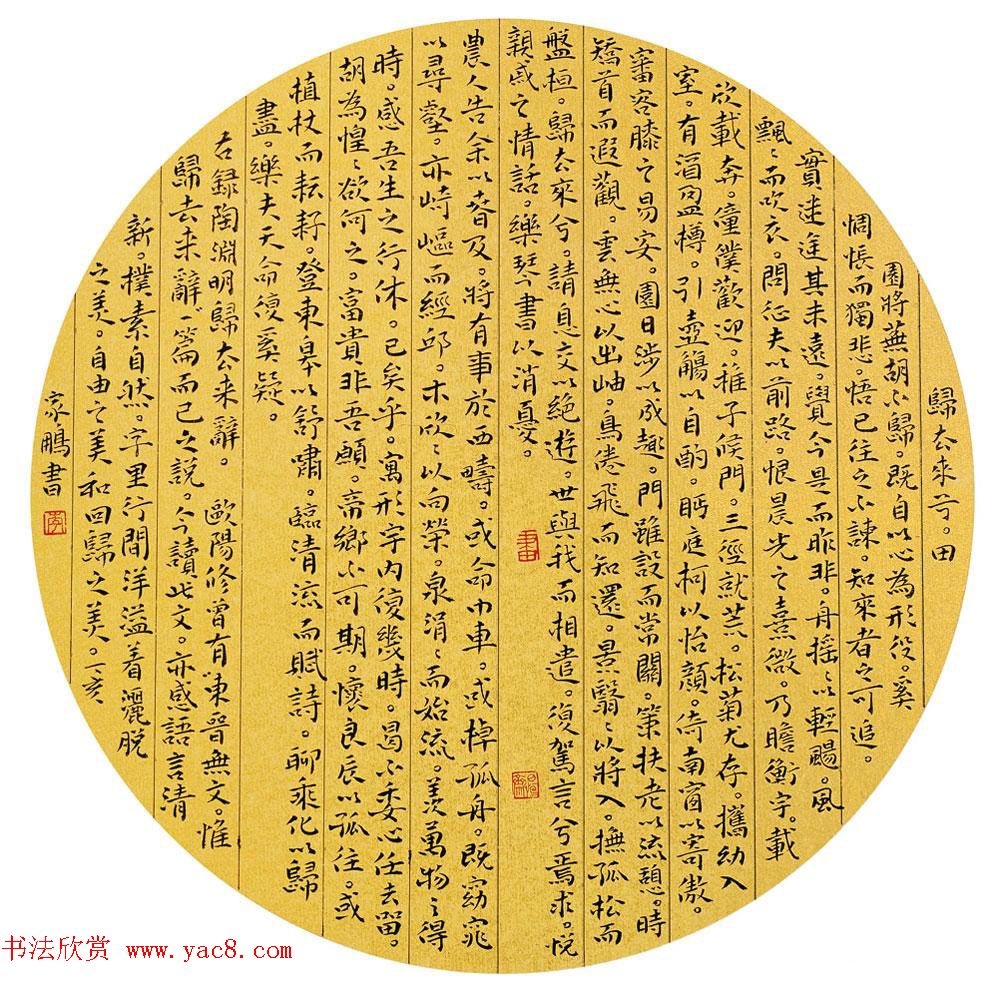 歸去來兮。田
園將蕪胡不歸。既自以心為形役。奚
惆悵而獨悲。悟已往之不諫。知來者之可追。
實迷途其未遠。覺今是而昨非。舟搖〻以輕颺。風
飄〻而吹衣。問征夫以前路。恨晨光之熹微。乃瞻衡宇。載
欣載奔。僮僕歡迎。稚子候門。三徑就荒。松菊尤存。攜幼入
室。有酒盈樽。引壺觴以自酌。眄庭柯以怡顏。倚南窗以寄傲。
審容膝之易安。園日涉以成趣。門雖設而常關。策扶老以流憩。時
矯首而遐觀。雲無心以出岫。鳥倦飛而知還。景翳〻以將入。撫孤松而
盤桓。歸去來兮。請息交以絕遊。世與我而相遺。復駕言兮焉求。悅
親戚之情話。樂琴書以消憂。
農人告余以春及。將有事於西疇。或命巾車。或棹孤舟。既窈窕
以尋壑。亦崎嶇而經邱。木欣〻以向榮。泉涓〻而始流。羨萬物之得
時。感吾生之行休。已矣乎。寓形宇內復幾時。曷不委心任去留。
胡為惶〻欲何之。富貴非吾願。帝鄉不可期。懷良辰以孤往。或
植杖而耘耔。登東皋以舒嘯。臨清流而賦詩。聊乘化以歸
盡。樂夫天命復奚疑。
右録陶淵明歸去来辭。歐陽修曾有“東晉無文。惟
歸去来辭”一篇而已之説。今讀此文。亦感語言清
新。樸素自然。字里行間洋溢着灑脱
之美。自由之美和回歸之美。丁亥
家鵬書
书法欣赏 www.yac8.com